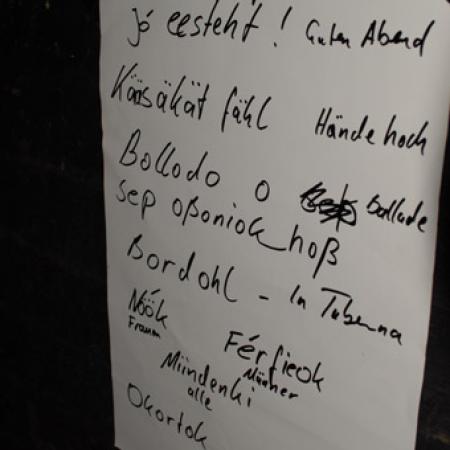 jó eesteht! Guten Abend
Kääsäkät fähl Hände hoch
Bollodo o bollade
sep oßoniock hoß
Bordohl - In Taberna
Nöök Férfieok
Frauen Männer
Miindenki
alle
Okortok